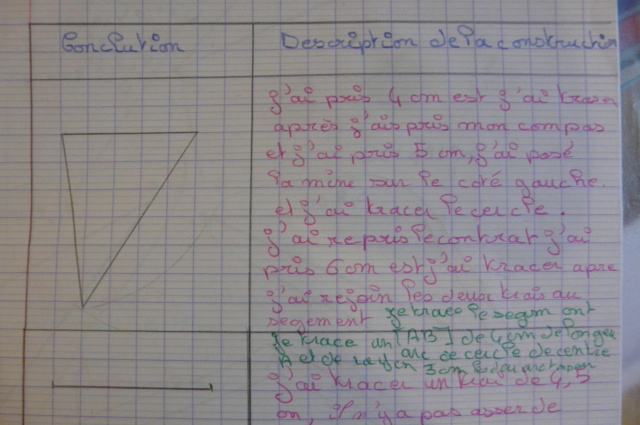 Conclution
Description de la construction
j'ai pris 4 cm est j'ai tracer
après j'ais pris mon compas
et j'ai pris 5 cm, j'ai posé
la mine sur le coté gauche.
et j'ai tracer le cercle.
j'ai repris le contrat j'ai
pris 6 cm est j'ai tracer apre
j'ai rejoin les deux trais au
segement je trace le segm ont
Je trace un [AB] de 4 cm de longeu
un arc de cercle de centre
A et de rayon 3 cm
j'ai tracer un trai de 4,5
cm, il n'y a pas asser de